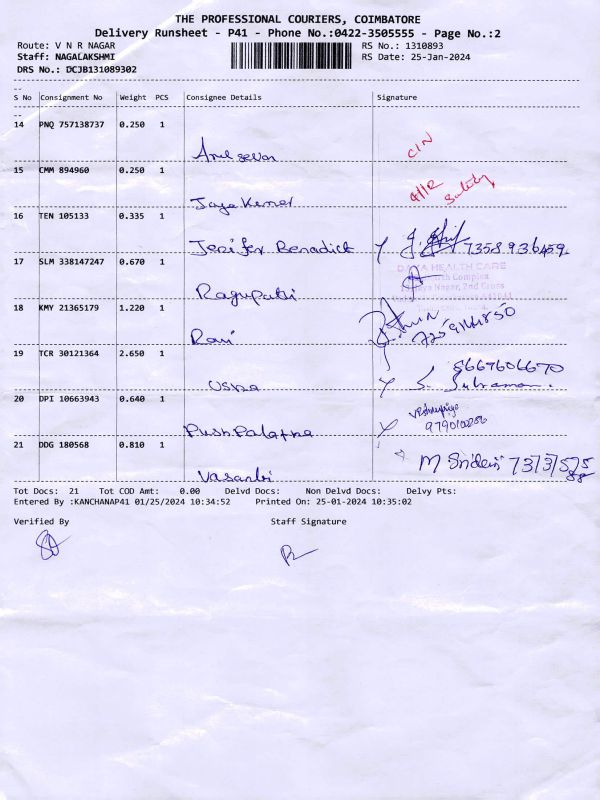 THE PROFESSIONAL COURIERS, COIMBATORE
Delivery Runsheet - P41 - Phone No.:0422-3505555 - Page No.:2
Route: V N R NAGAR RS No.: 1310893
Staff: NAGALAKSHMI RS Date: 25-Jan-2024
DRS No.: DCJB131089302
S No Consignment No Weight PCS Consignee Details Signature
14 PNQ 757138737 0.250 1
C/N
15 CMM 894960 0.250 1
Jaya Kumar
16 TEN 105133 0.335 1
Jerifer Benadict 7358936459
17 SLM 338147247 0.670 1
DATA HEALTH CARE
Complex
Nagar, 2nd Cross
Ragupathi
18 KMY 21365179 1.220 1
Ravi
19 TCR 30121364 2.650 1
8667606670
Usha S. Subraman.
20 DPI 10663943 0.640 1
Pushpalatha
21 DDG 180568 0.810 1
M Sridevi 73737575
88
Vasanthi
Tot Docs: 21 Tot COD Amt: 0.00 Delvd Docs: Non Delvd Docs: Delvy Pts:
Entered By :KANCHANAP41 01/25/2024 10:34:52 Printed On: 25-01-2024 10:35:02
Verified By Staff Signature